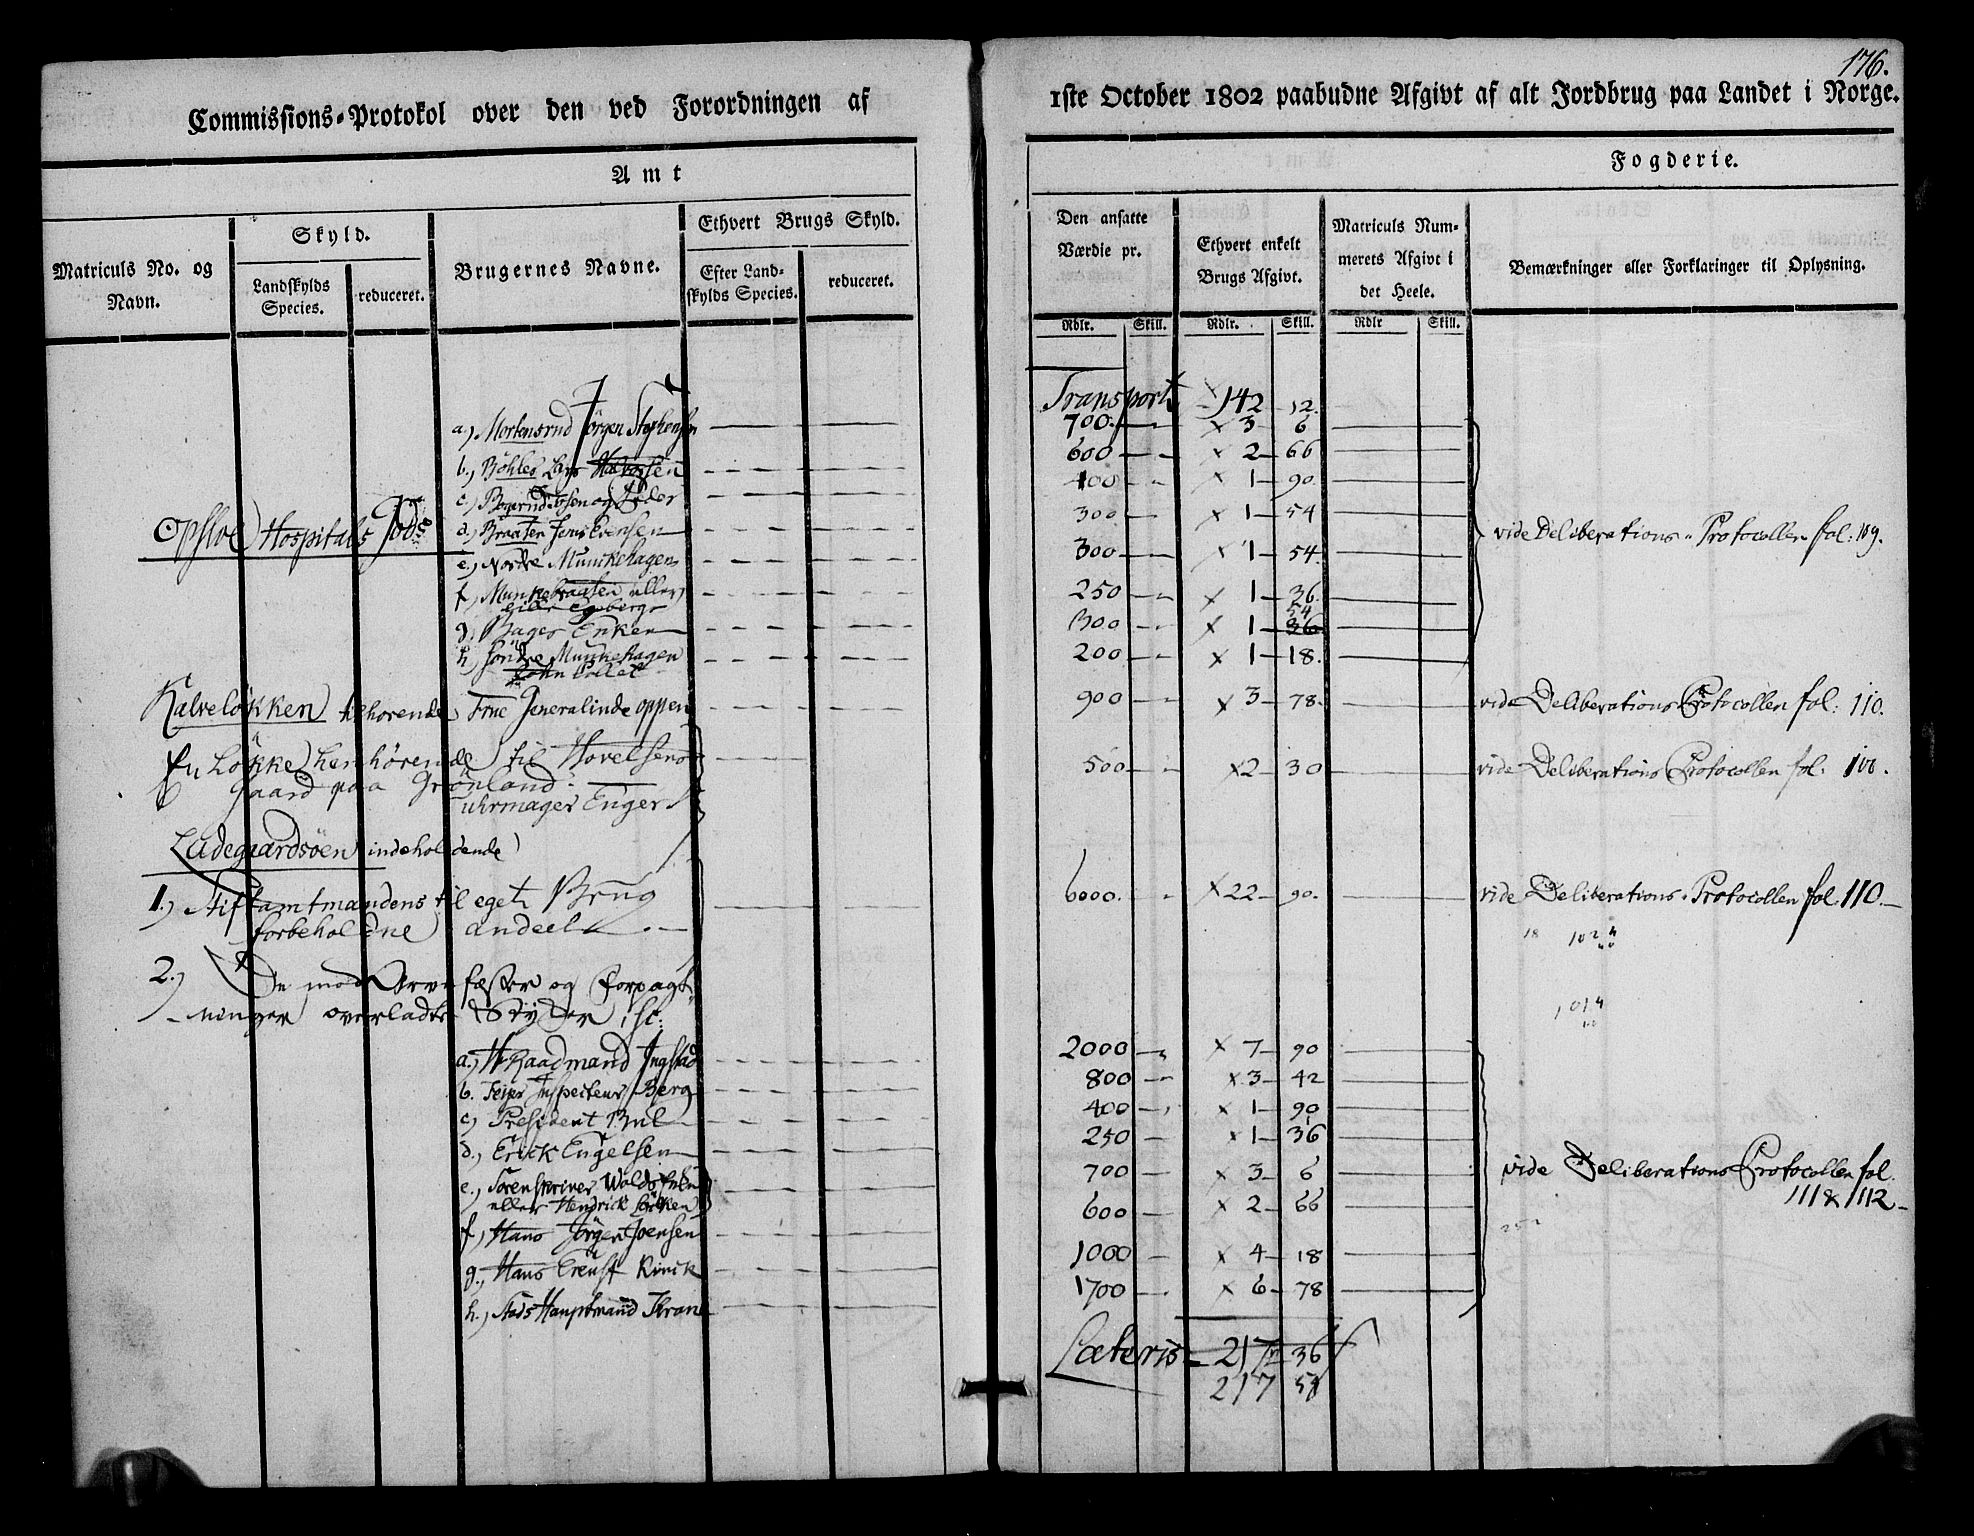 176.
Commissions-Protokol over den ved Forordningen af 1ste October 1802 paabudne Afgivt af alt Jordbrug paa Landet i Norge.
Amt
Fogderie.
Matriculs No. og Navn.
Skyld.
Landskylds Species.
reduceret.
Brugernes Navne.
Ethvert Brugs Skyld.
Efter Landskylds Species.
reduceret.
Den ansatte Værdie pr.
Ethvert enkelt Brugs Afgivt.
Matriculs Nummerets Afgivt i det Heele.
Bemærkninger eller Forklaringer til Oplysning.
Rdlr. Skill. Rdlr. Skill. Rdlr Skill.
Transport 142 12.
Opsloe Hospitals Gods
a.) Mortensrud Jörgen Stephensen 700. x 3 6
b.) Böhler Lars Halvorsen 600 x 2 66
c.) og Peder 400 x 1 90.
d.) Braaten Jens Evensen 300 x 1 54
e.) Nordre Munckehagen 300 x 1 54.
f.) Munkebraaten eller
lille Egeberg 250 x 1 36.
g. Bager Enken 300 x 1 36 54
h.) Söndre Munkehagen
John Collet 200 x 1 18.
vide Deliberations-Protocollen fol: 109.
Kalveløkken tilhørende Frue Generalinde oppen 900 x 3 78.
vide Deliberations Protocollen fol: 110.
En Løkke henhørende til Hovelsens
Gaard paa Grønland:
uhrmager Enger 500 x 2 30
vide Deliberations Protocollen fol: 110.
Ladegaardsöen indeholdende
1.) Stiftamtmandens til eget Brug
forbeholdne andeel 6000. x 22 90.
vide Deliberations-Protocollen fol 110.
2.) De mod Arvefæster og Forpagt-
ninger overladte Stykker, sc:
a.) H Raadmand Ingstad 2000 x 7 90
b. Tejer Inspecteur Berg 800 x 3 42
c) President Bul 400 x 1 90
d.) Erick Engelsen 250 x 1 36
e.) Sorenskriver Wolds Enke
eller Hendrick 700 x 3 6
f.) Hans Jörgen Joensen 600 x 2 66
g., Hans Ernst Rinck 1000 x 4 18
h.) Stads Hauptmand Thrane 1700 x 6 78
vide Deliberations Protocollen fol.
111 & 112
Lateris 217 36
217 54